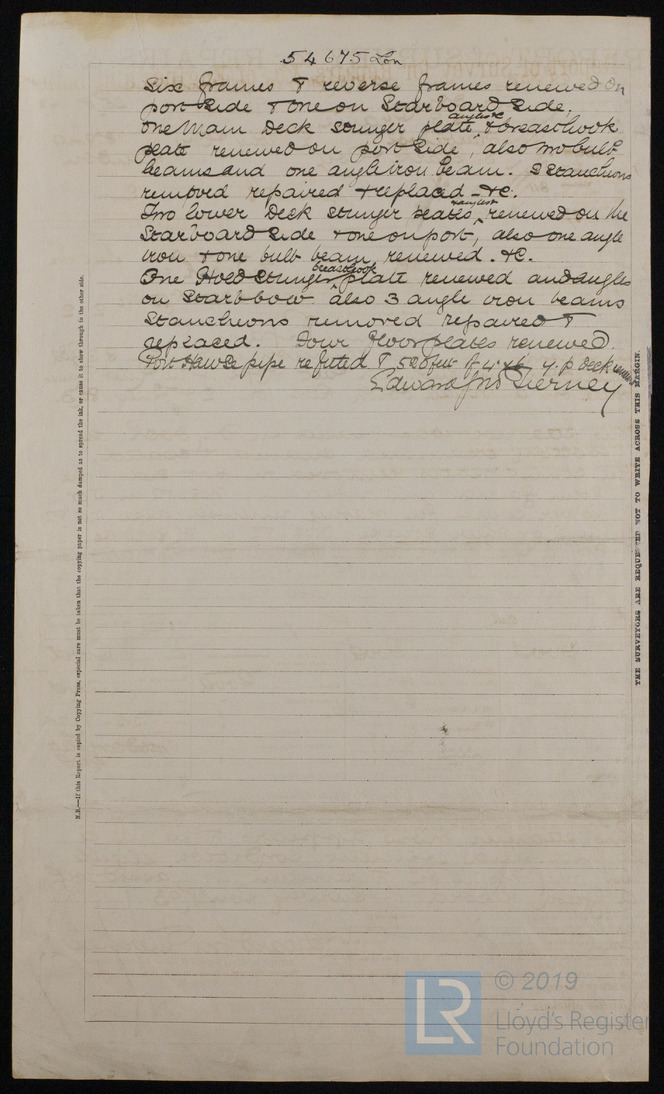 54675 Lon
Six frames & reverse frames renewed on
port side & one on Starboard Side.
One Main Deck stringer plate, angles & breasthook
plate renewed on port side, also two bulb
beams and one angle iron beam. 2 Stanchions
removed repaired & replaced &c.
Two lower Deck stringer plates, & angles renewed on the
Starboard side & one on port, also one angle
iron & one bulb beam renewed. &c.
One Hold Stringer breasthook plate renewed and angles
on Starb bow also 3 angle iron beams
Stanchions removed repaired &
replaced. Four floor plates renewed.
Port Hawse pipe refitted & 520 feet of y. p deck
Edward Jno Tierney
N.B.—If this Report is copied by Copying Press, especial care must be taken that the copying paper is not so much damped as to spread the ink, or cause it to show through to the other side.
THE SURVEYORS ARE REQUESTED NOT TO WRITE ACROSS THIS MARGIN.
LR © 2019
Lloyd's Register
Foundation